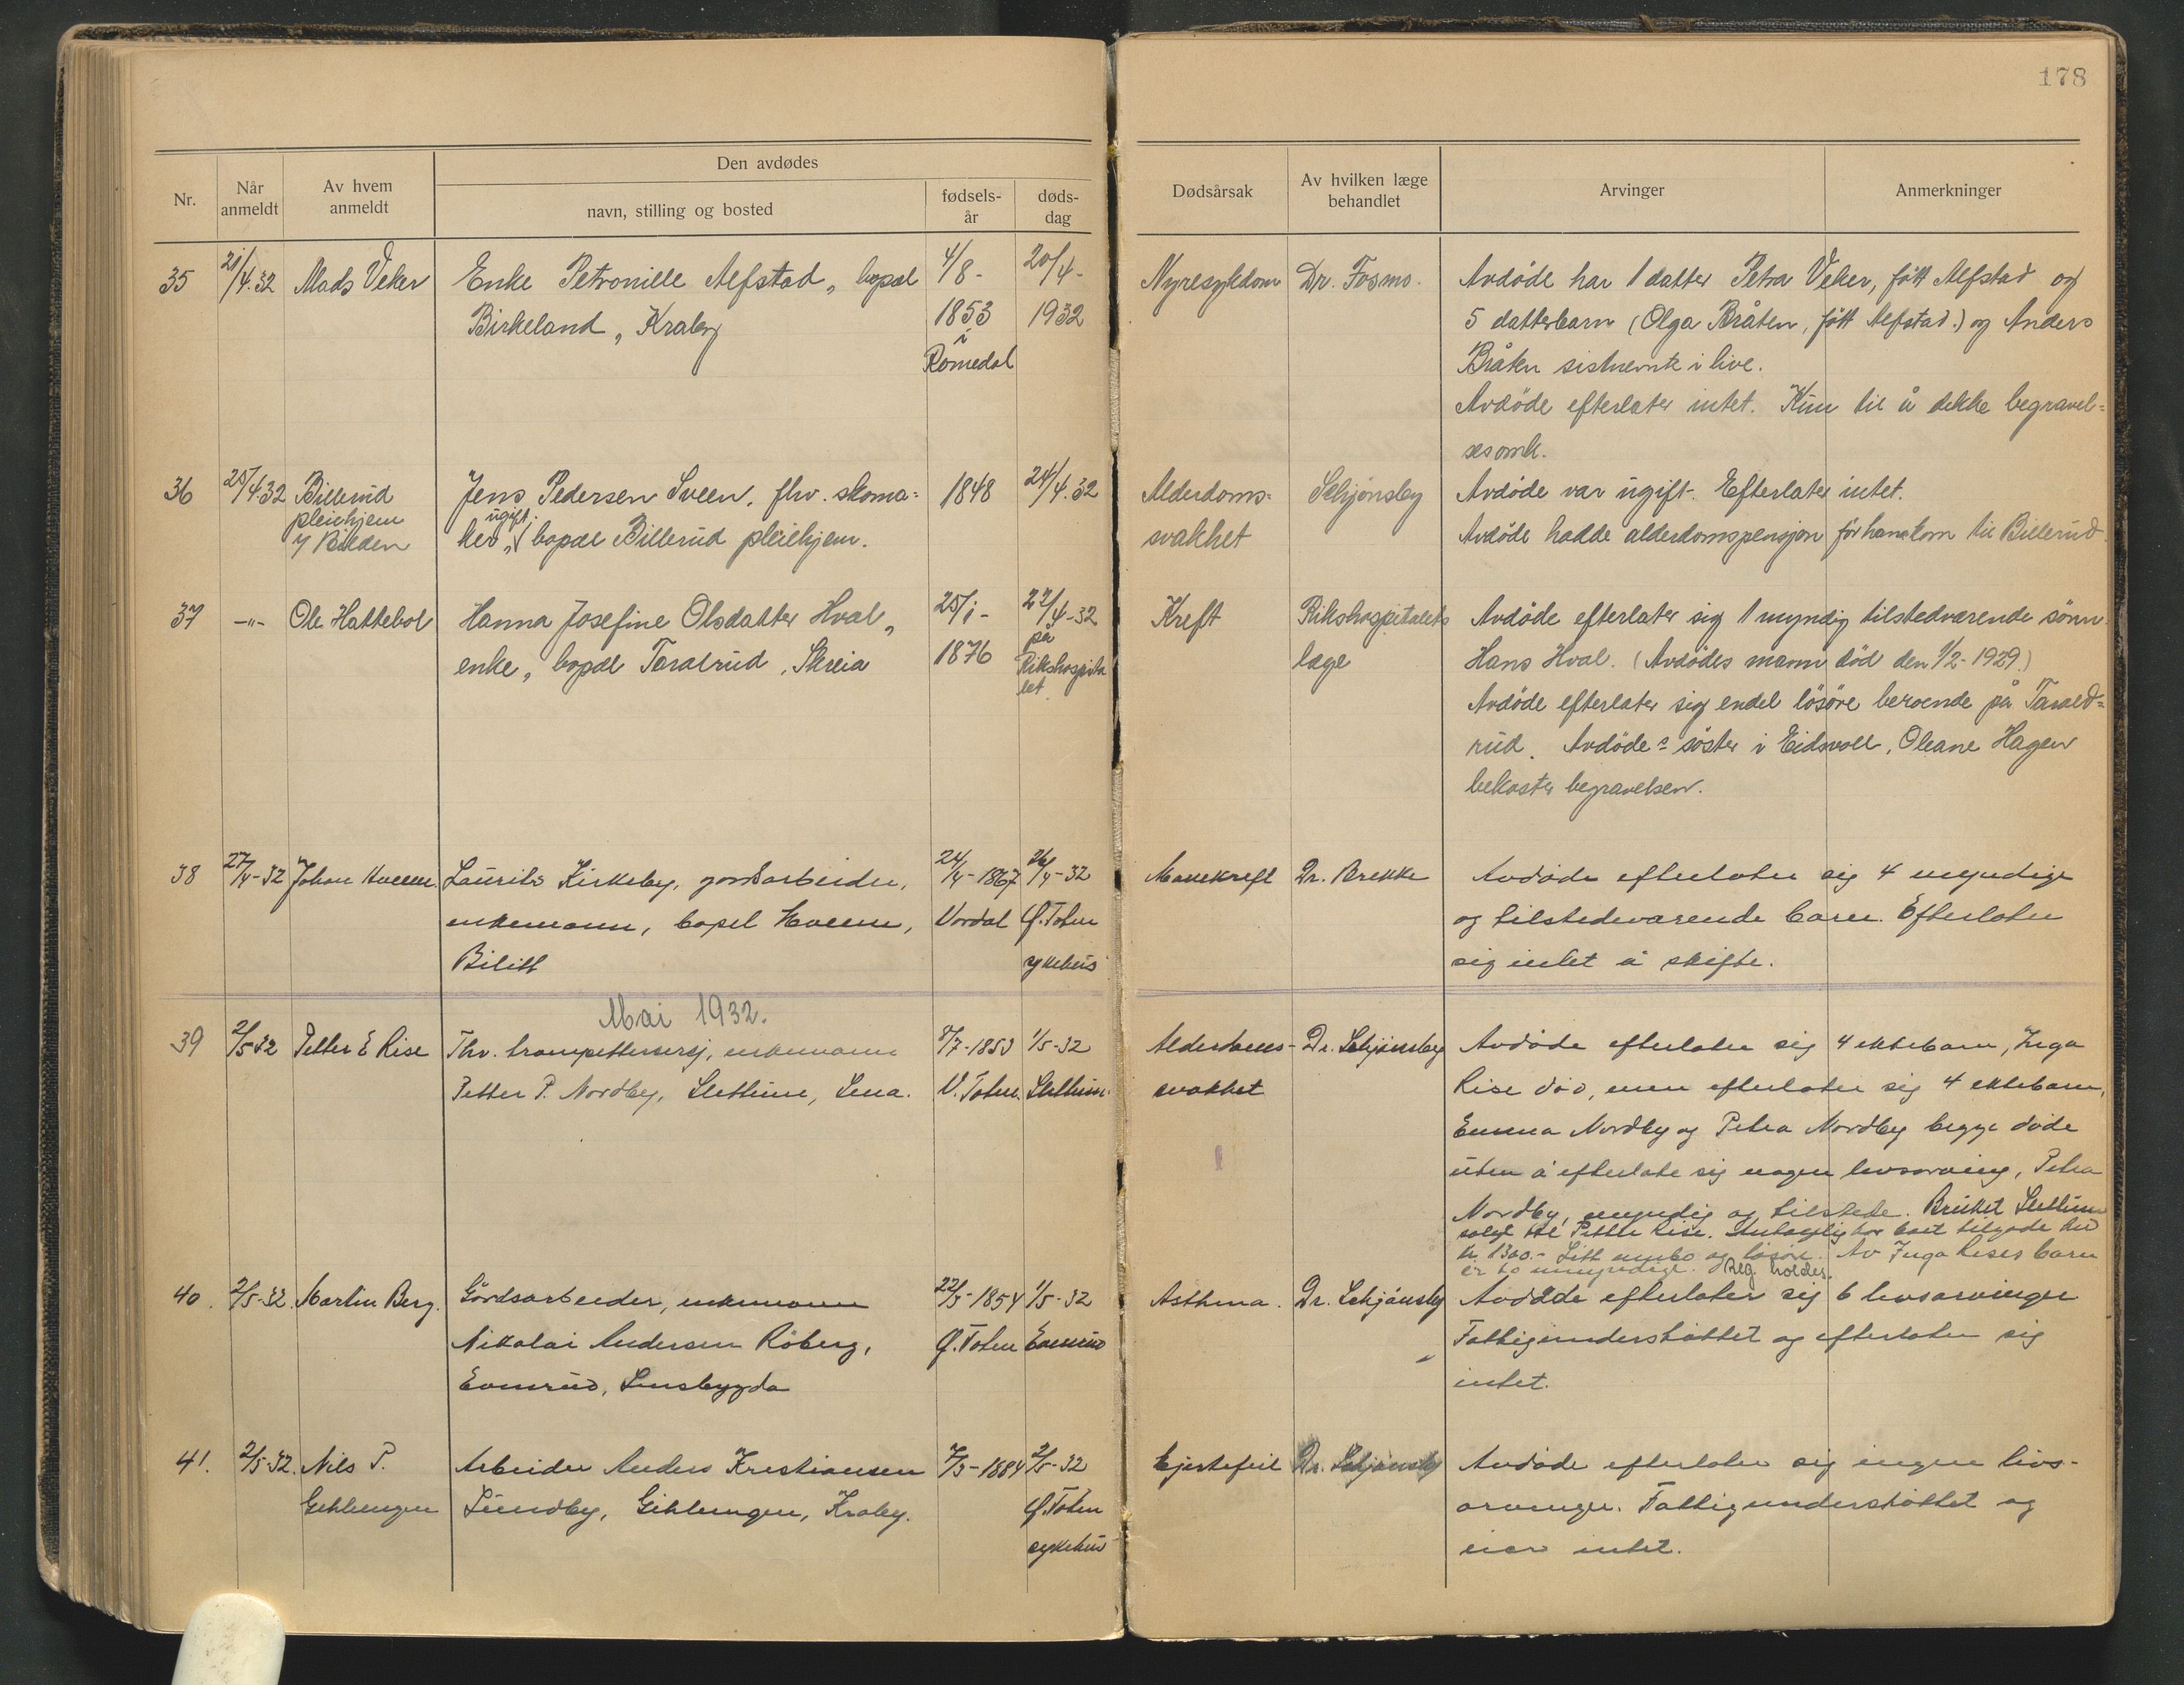 178
Den avdødes
Nr.
Når anmeldt
Av hvem anmeldt
navn, stilling og bosted
fødsels-år
døds-dag
Dødsårsak
Av hvilken læge behandlet
Arvinger
Anmerkninger
35 21/4.32 Mads Veker Enke Petronille Alfstad, bopæl 4/8- 20/4-
Birkeland, Kraby 1853 1932
i
Romedal
Nyresykdom Dr. Fosmo. Avdøde har 1 datter Petra Veker, født Alfstad og
5 datterbarn (Olga Bråten, født Alfstad.) og Anders
Bråten sistnevnte i live.
Avdøde efterlater intet. Kun til å dekke begravel=
sesomk.
36 25/4.32 Billerud Jens Pedersen Sveen, fhv. skoma= 1848 24/4.32
pleiehjem ugift.
ker, bopæl Billerud pleiehjem.
Alderdoms= Schjønsby Avdøde var ugift. Efterlater intet.
svakhet Avdøde hadde alderdomspensjon før han kom til Billerud.
37 -"- Ole Hattebol Hanna Josefine Olsdatter Hval, 25/1- 22/4-32
enke, bopæl Taralrud, Skreia 1876 på
Rikshospita
let
Kreft Rikshospitalets Avdøde efterlater sig 1 myndig tilstedværende sønn
læge Hans Hval. (Avdødes mann død den 1/2-1929.)
Avdøde efterlater sig endel løsøre beroende på Tarald=
rud. Avdødes søster i Eidsvoll, Oleane Hagen
bekoster begravelsen.
38 27/4-32 Johan Hveem Laurits Kirkeby, gårdsarbeider, 24/4-1867 26/4-32
enkemann, bopel Hveem, Vardal Ø.Toten
Bilitt sykehus
Mavekreft Dr. Brekke Avdøde efterlater sig 4 myndige
og tilstedeværende barn. Efterlater
sig intet å skifte.
Mai 1932.
39 2/5-32 Petter E Rise Fhv. trompettersersj, enkemann 7/7-1853 1/5-32
Petter P. Nordby, Slettum, Lena. V. Toten. Slettum.
Alderdoms- Dr. Schjønsby Avdøde efterlater sig 4 ektebarn, Inga
svakhet Rise død, men efterlater sig 4 ektebarn,
Emma Nordby og Petra Nordby begge døde
uten å efterlate sig nogen livsarving, Petra
Nordby, myndig og tilstede. Bruket Slettum
solgt til Petter Rise.
kr. 1300.- Litt innbo og løsøre. Av Inga Rises barn
er to umyndige. Beg. holdes.
40. 2/5-32. Martin Berg. Gårdsarbeider, enkemann 22/5-1854 1/5-32
Nikolai Andersen Røberg, Ø.Toten Evenrud
Evenrud, Lensbygda
Asthma. Dr. Schjønsby Avdøde efterlater sig 6 livsarvinger
Fattigunderstøttet og efterlater sig
intet.
41. 2/5-32. Nils P. Arbeider Anders Kristiansen 7/3-1884 2/5-32
Gihlungen Lundby, Gihlungen, Kraby. Ø.Toten
sykehus
Hjertefeil Dr. Schjønsby Avdøde efterlater sig ingen livs-
arvinger. Fattigunderstøttet og
eier intet.